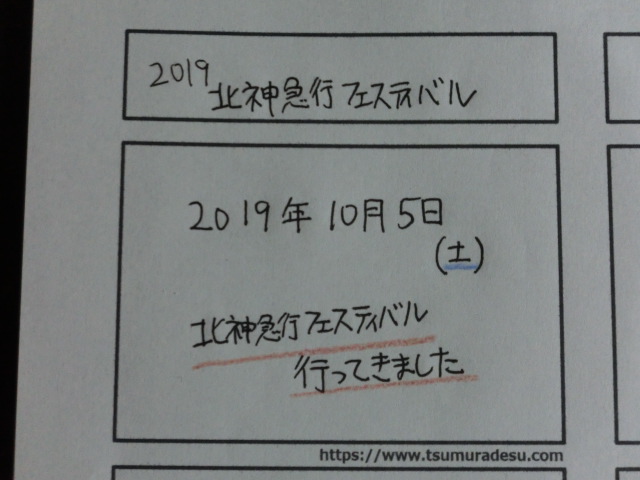 2019 北神急行フェスティバル
2019年10月5日
(土)
北神急行フェスティバル
行ってきました
https://www.tsumuradesu.com